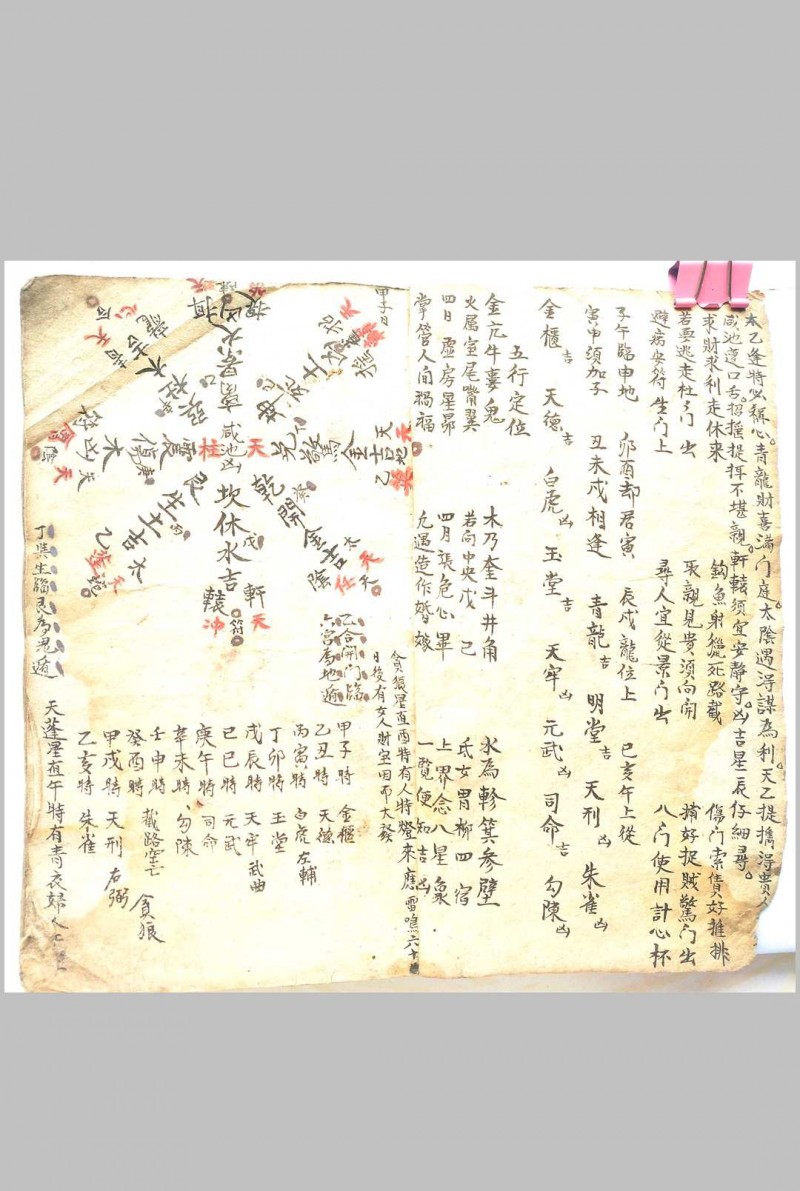 太乙逢特必称心。青龍財喜滿门庭。太陰遇得謀為利。天乙提攜得貴人
咸池
口舌。招搖提揖不堪親。軒轅須宜安静守。凶吉星辰仔細尋。
求財求利走休来 釣魚射獵死路截 傷门索債好推排
若要逃走杜门出 求親見貴須向開 捕好捉賊驚门出
避病安符生门上 尋人宜從景门出 八门使用計心杯
子午臨申地 卯酉却君寅 辰戌龍位上 巳亥午上從
寅申須加子 丑未戌相逢 青龍吉 明堂吉 天刑凶 朱雀凶
金櫃吉 天德吉 白虎凶 玉堂吉 天牢凶 元武凶 司命吉 勾陳凶
五行定位
金亢牛婁鬼 木乃奎斗井角 水為軫箕参壁
火属室尾嘴翼 若向中央戊己 氐女胃柳四宿
四日虚房星昴 四月張危心畢 上界念八星象
掌管人间祸福 凢遇造作婚嫁 一覧便知吉凶
甲子日
貪狼星直酉特有人特燈来應雷鳴六十
日後有女人財宝因而大發
乙合開门臨
六宫為地遁
甲子特 金櫃
乙丑特 天德
丙寅特 白虎 左輔
丁卯特 玉堂
戊辰特 天牢 武曲
己巳特 元武
庚午特 司命
辛未特 勾陳
壬申特 截路空亡
癸酉特 貪狼
甲戌特 天刑 右弼
乙亥特 朱雀
天蓬星直午特有青衣婦人
丁與生臨艮為鬼遁
坎休水吉
軒轅
天冲
符
乾開金吉
太陰
天任
兌驚金吉
天乙
咸池凶
天柱
艮生土吉
太乙
天蓬
震傷木凶
巽杜木吉
離景火凶
坤死土凶